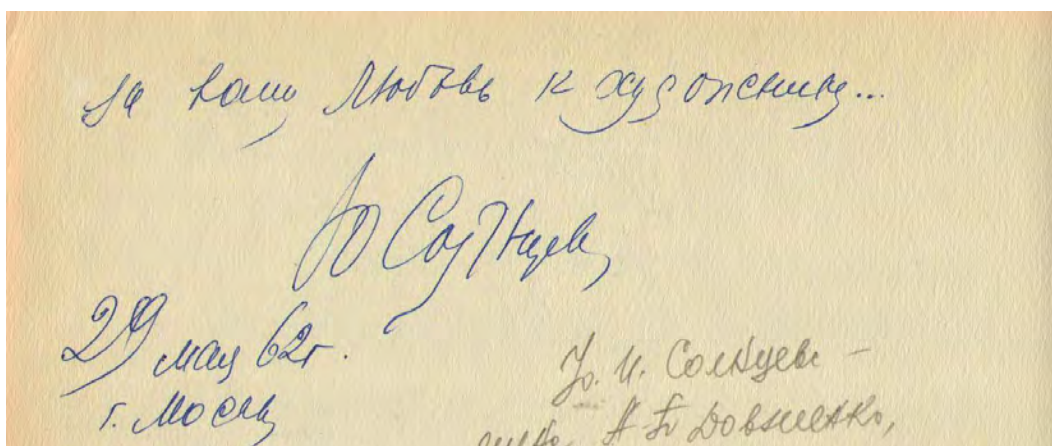 за вашу любовь к художнику...
Ю Солнцева
29 мая 62г.
г. Москва
Ю. И. Солнцева –
А. П. Довженко,